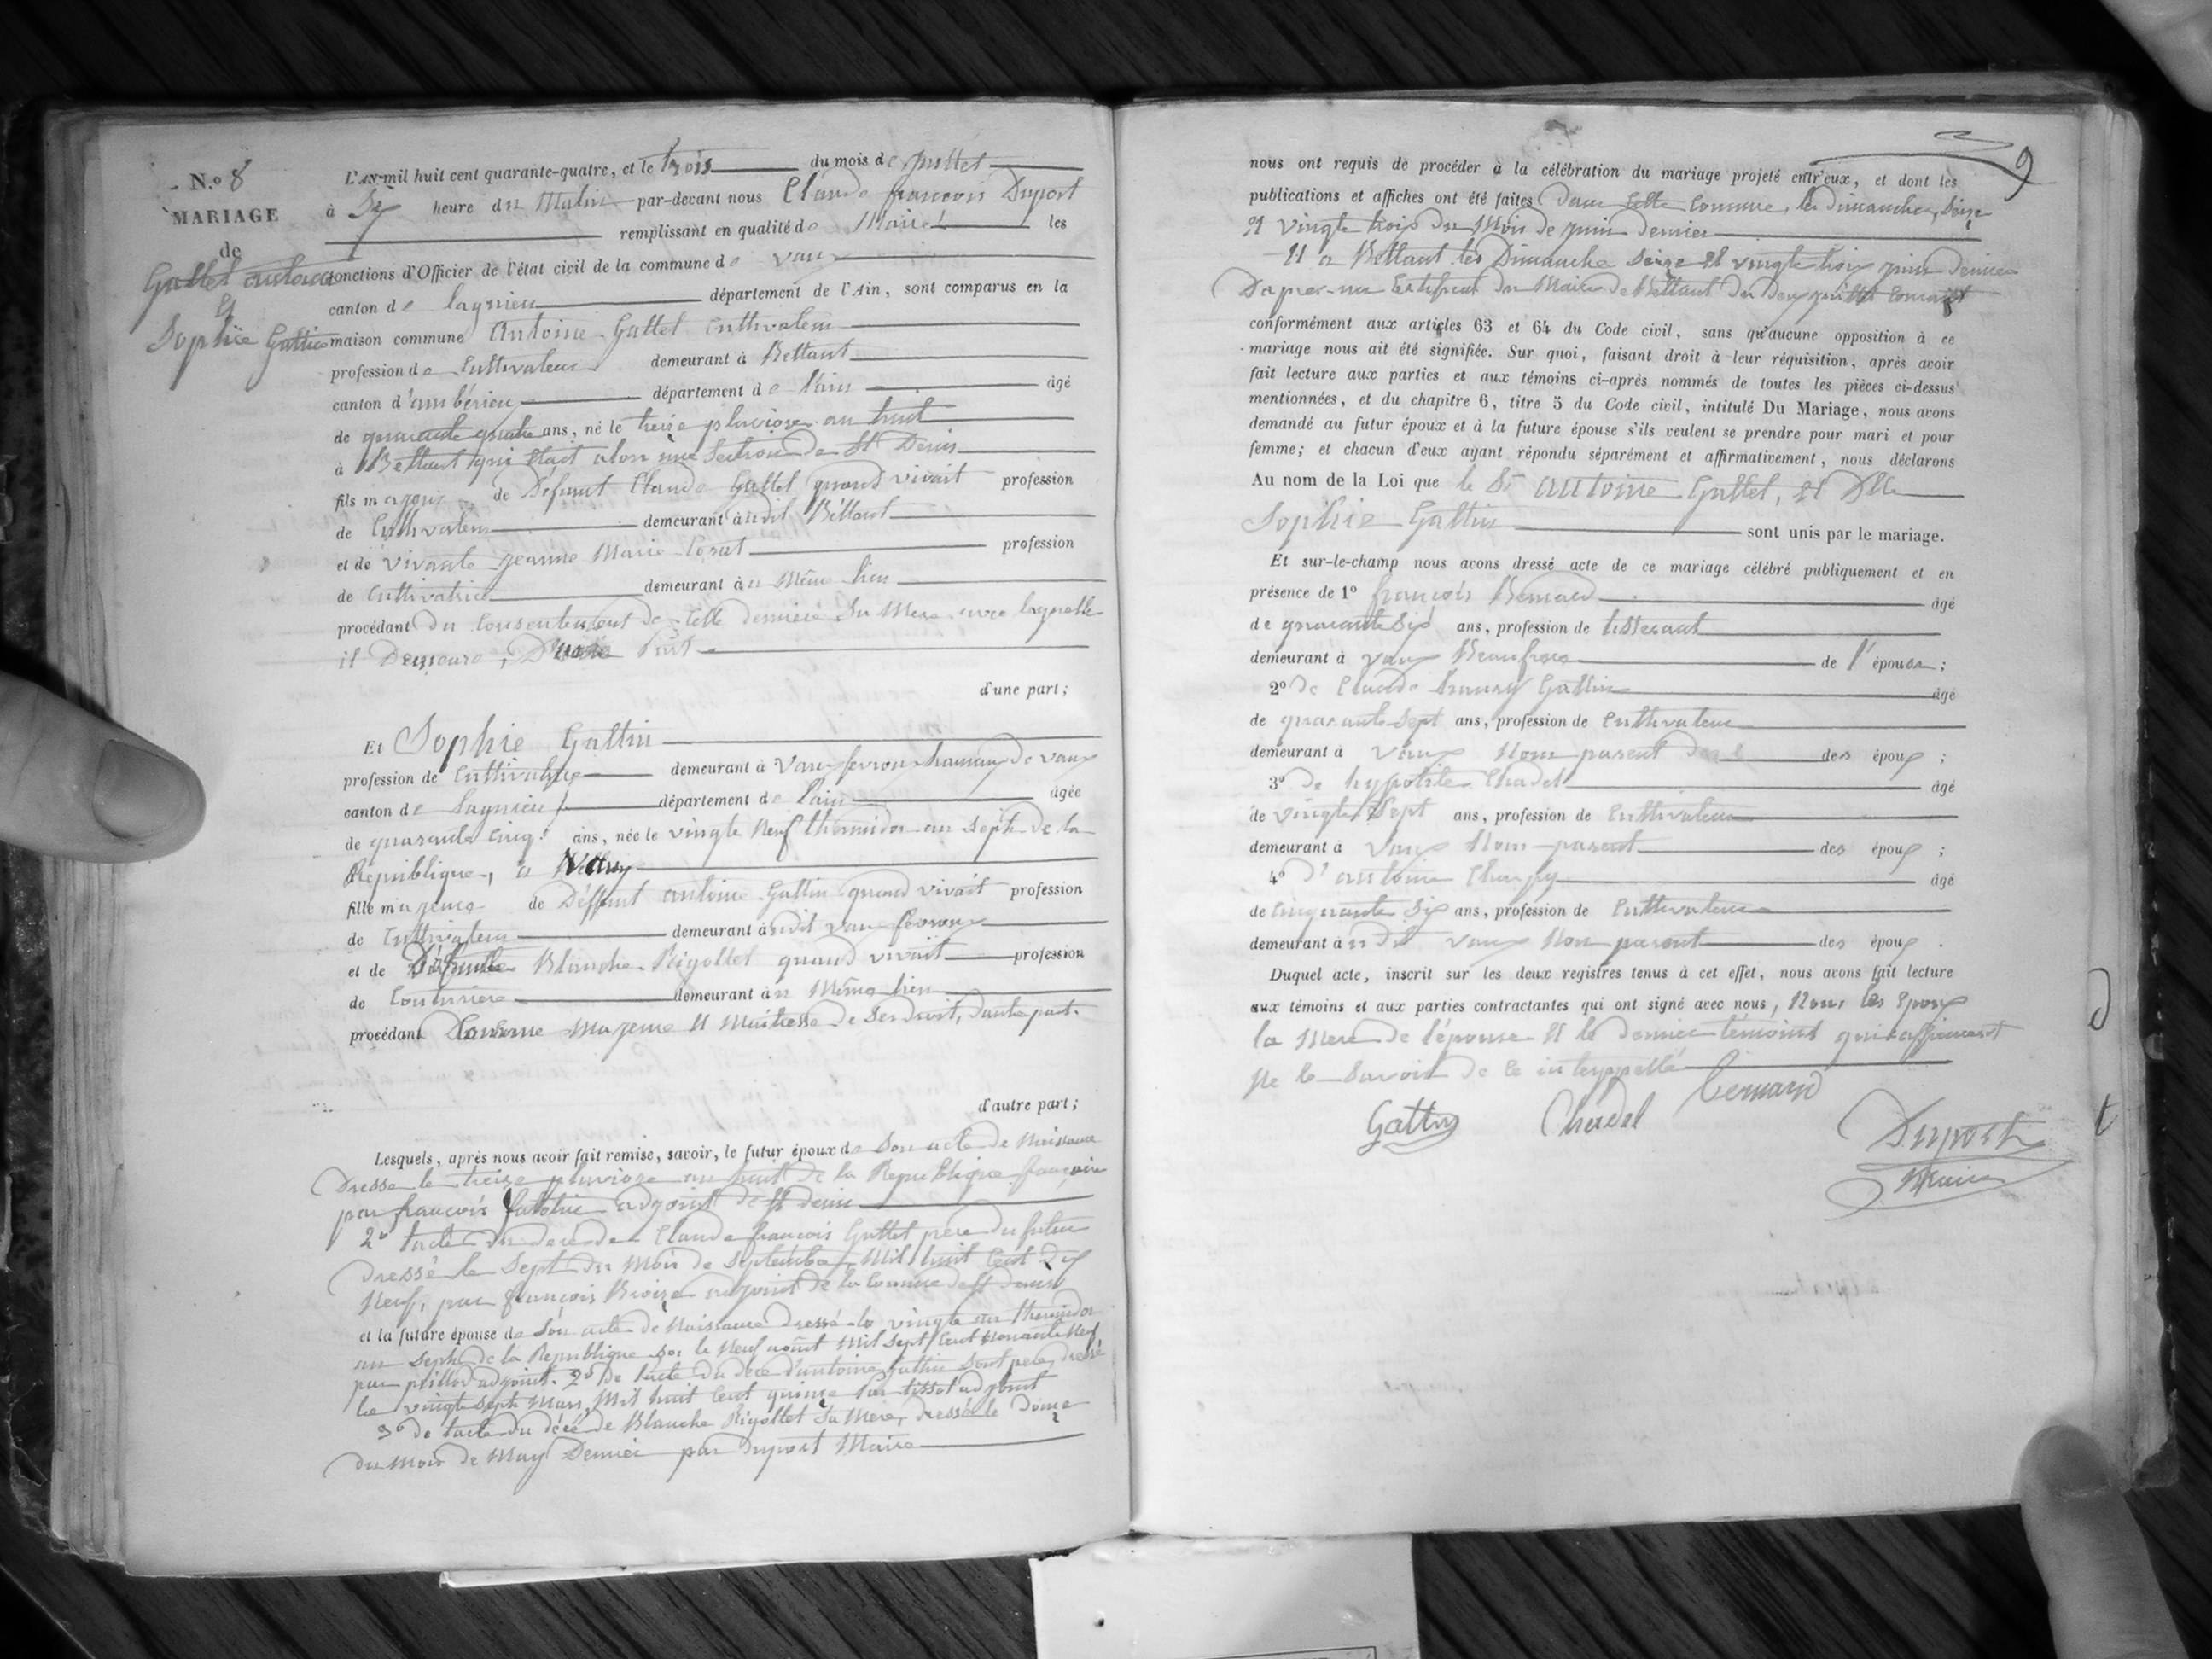 N.º 8
MARIAGE
de
Guttet antoine
et
Sophie Guttin
L'AN mil huit cent quarante-quatre, et le trois du mois de juillet
à Six heure du Matin par-devant nous Claude françois Duport
remplissant en qualité de Maire les
fonctions d'Officier de l'état civil de la commune de vaux
canton de lagnieu département de l'Ain, sont comparus en la
maison commune Antoine Guttet Cultivateur
profession de Cultivateur demeurant à Bettant
canton d'ambérieu département de l'ain âgé
de quarante quatre ans, né le treize pluviose an huit
à Bettant qui Etait alors une Section de St Denis
fils majeur de Defunt Claude Guttet quand vivait profession
de Cultivateur demeurant à udit Bettant
et de vivante jeanne Marie profession
de Cultivatrice demeurant à u Même lieu
procédant du Consentement de Celle derniere Sa Mere avec laquelle
il Demeure, D'une Part
d'une part;
Et Sophie Guttin
profession de Cultivatrice demeurant à Vaux fevroux hamau de vaux
canton de Lagnieu département de l'ain âgée
de quarante Cinq ans, née le vingte Neuf thermidor an Septe de la
République, à
fille majeure de Deffunt antoine Guttin quand vivait profession
de Cultivateur demeurant à udit vaux fevroux
et de Défunte Blanche Rigollet quand vivait profession
de Couturiere demeurant à u Même lieu
procédant Comme Majeure Et Maitresse de Ses droit, dautre part.
d'autre part;
Lesquels, après nous avoir fait remise, savoir, le futur époux de Son acte de Naissance
Dressé le treize pluviose an huit de la Republique française
par françois adjoint de St denis
2º l'acte du deces de Claude françois Guttet pere du futur
dressé le Sept du Mois de Septembre Mil huit Cent Dix
Neuf, par françois adjoint de la Commune de St denis
et la future épouse de Son acte de Naissance dressé le vingte un thermidor
an Septe de la Republique ou le Neuf aout Mil Sept Cent Nonante Neuf
par adjoint. 2º De l'acte du dece d'antoine Guttin Sont pere, dressé
le vingte Septe Mars Mil huit Cent quinze Par tissot adjoint
3º de l'acte du décé de Blanche Rigollet Sa Mere, dressé le Douze
du Mois de May Dernier par Duport Maire
9
nous ont requis de procéder à la célébration du mariage projeté entr'eux, et dont les
publications et affiches ont été faites Dans Cette Commune, les dimanches Seize
Et vingte trois du Mois de juin dernier
Et a Bettant les Dimanche Seize Et vingte trois juin Dernier
Dapres un Certificat du Maire de Bettant du Deux juillet Courant
conformément aux articles 63 et 64 du Code civil, sans qu'aucune opposition à ce
mariage nous ait été signifiée. Sur quoi, faisant droit à leur réquisition, après avoir
fait lecture aux parties et aux témoins ci-après nommés de toutes les pièces ci-dessus
mentionnées, et du chapitre 6, titre 5 du Code civil, intitulé Du Mariage, nous avons
demandé au futur époux et à la future épouse s'ils veulent se prendre pour mari et pour
femme; et chacun d'eux ayant répondu séparément et affirmativement, nous déclarons
Au nom de la Loi que le Sr antoine Guttet, Et Dlle
Sophie Guttin sont unis par le mariage.
Et sur-le-champ nous avons dressé acte de ce mariage célébré publiquement et en
présence de 1º françois Bernard âgé
de quarante Six ans, profession de tisserant
demeurant à vaux Beaufrere de l'épouse;
2º de Claude Guttin âgé
de quarante Sept ans, profession de Cultivateur
demeurant à vaux Nom parent des époux;
3º De hypolite Chadel âgé
de vingte Sept ans, profession de Cultivateur
demeurant à vaux Nom parent des époux;
4º D'antoine âgé
de Cinquante Six ans, profession de Cultivateur
demeurant à u dit vaux Nom parent des époux.
Duquel acte, inscrit sur les deux registres tenus à cet effet, nous avons fait lecture
aux témoins et aux parties contractantes qui ont signé avec nous, Non les Epoux
la Mere de l'épouse Et le dernier témoins qui affirment
Ne le Savoir de Ce interppellé
Guttin Chadel bernard
Duport
Maire